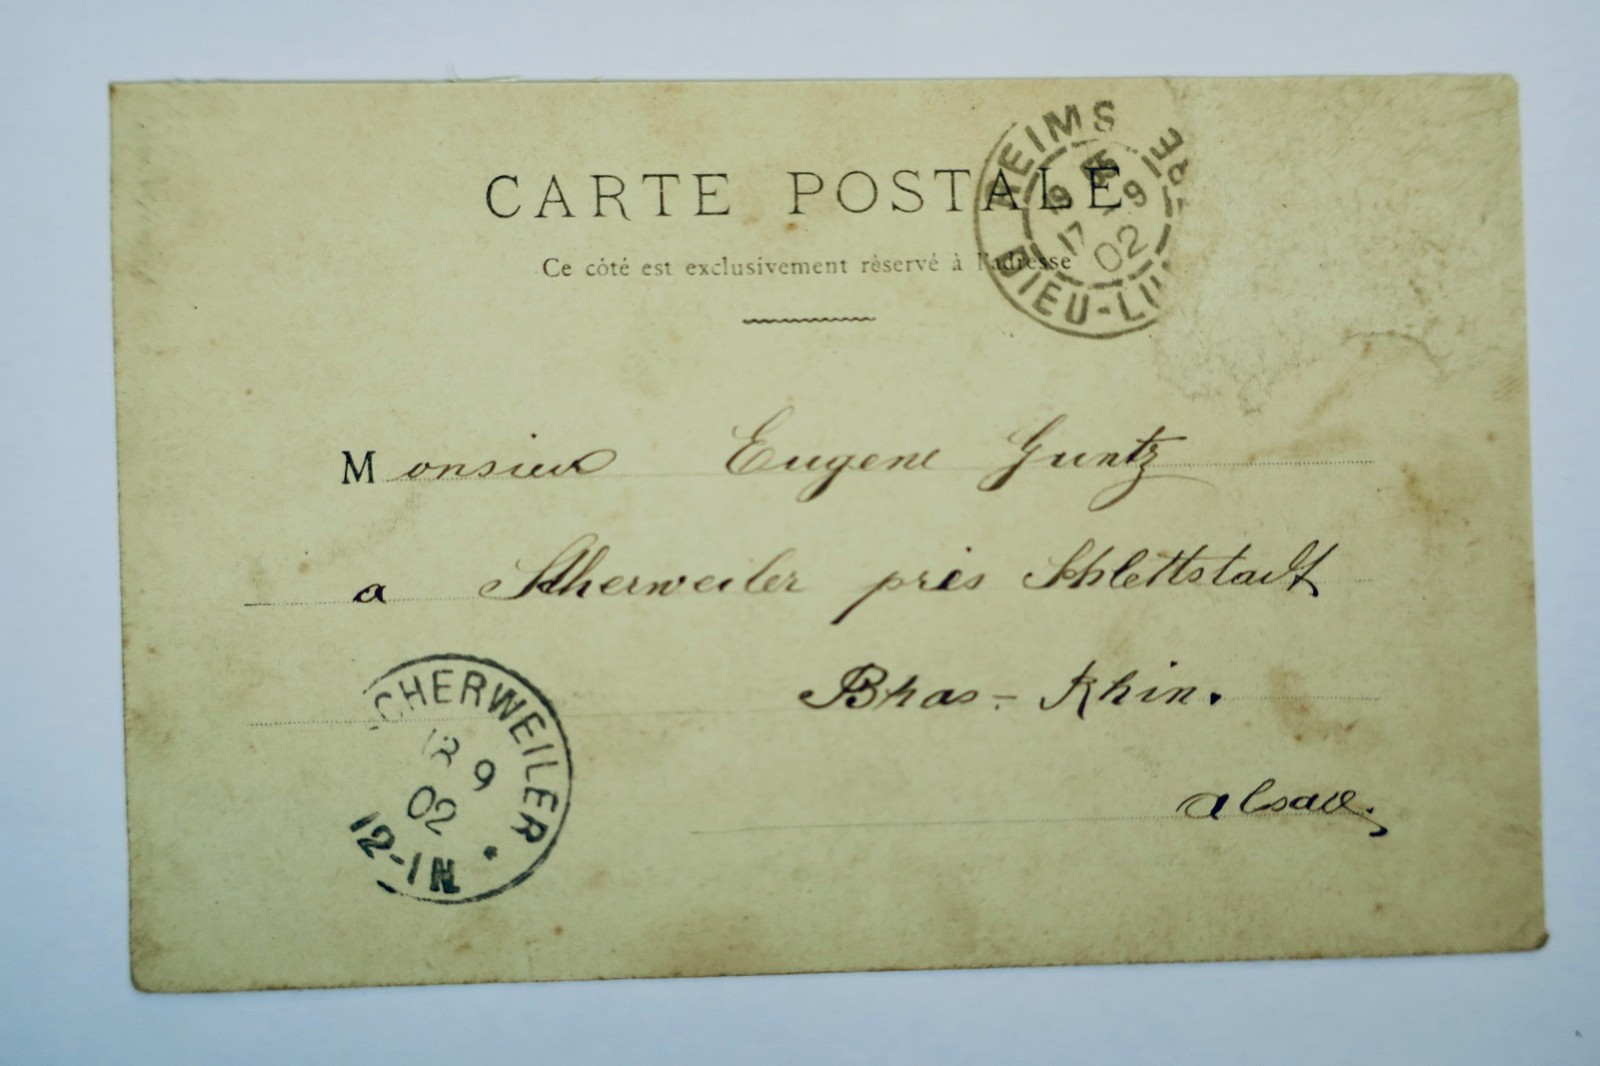 CARTE POSTALE
Ce côté est exclusivement réservé à l'adresse
REIMS
DIEU-LU
RE
17 -9
02
Monsieur Eugene Guntz
a Scherweiler près Schlettstadt
Bhas-Rhin.
alsace.
CHERWEILER
18 9
02
12-1N